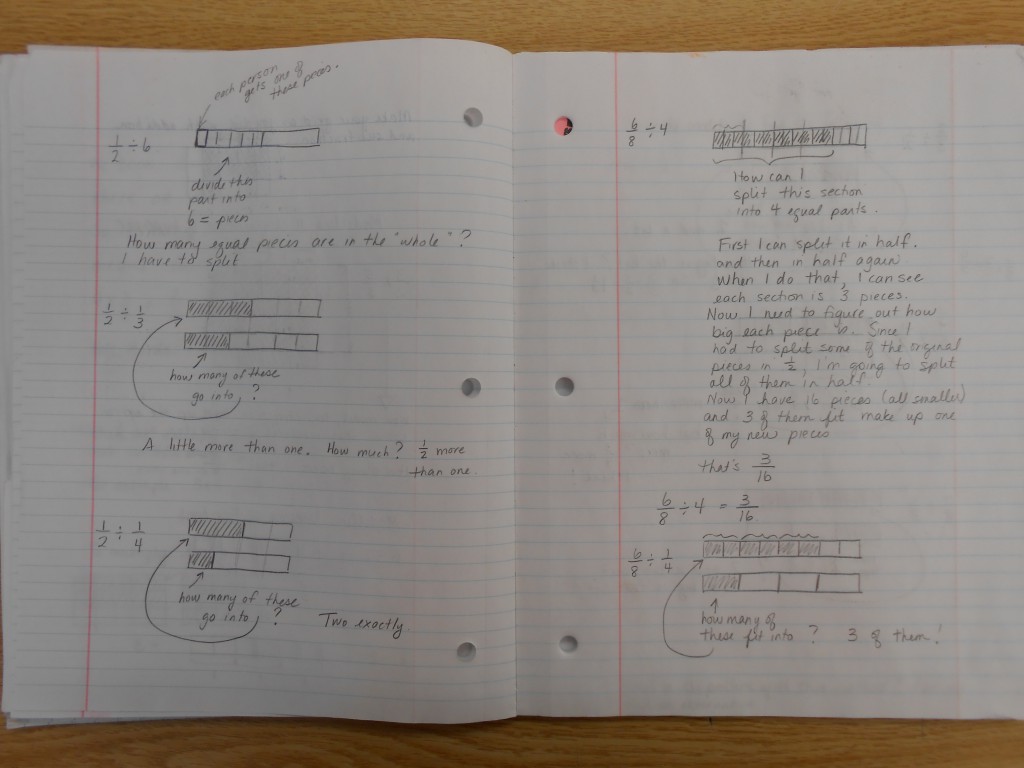 each person
gets one of
these pieces.
1/2 ÷ 6
divide this
part into
6 = pieces
How many equal pieces are in the "whole"?
I have to split
1/2 ÷ 1/3
how many of these
go into ?
A little more than one. How much? 1/2 more
than one.
1/2 ÷ 1/4
how many of these
go into ?
Two exactly.
6/8 ÷ 4
How can I
split this section
into 4 equal parts.
First I can split it in half.
and then in half again
When I do that, I can see
each section is 3 pieces.
Now I need to figure out how
big each piece is. Since I
had to split some of the orginal
pieces in 1/2, I'm going to split
all of them in half.
Now I have 16 pieces (all smaller)
and 3 of them fit make up one
of my new pieces
that's 3/16
6/8 ÷ 4 = 3/16
6/8 ÷ 1/4
how many of
these fit into ? 3 of them!